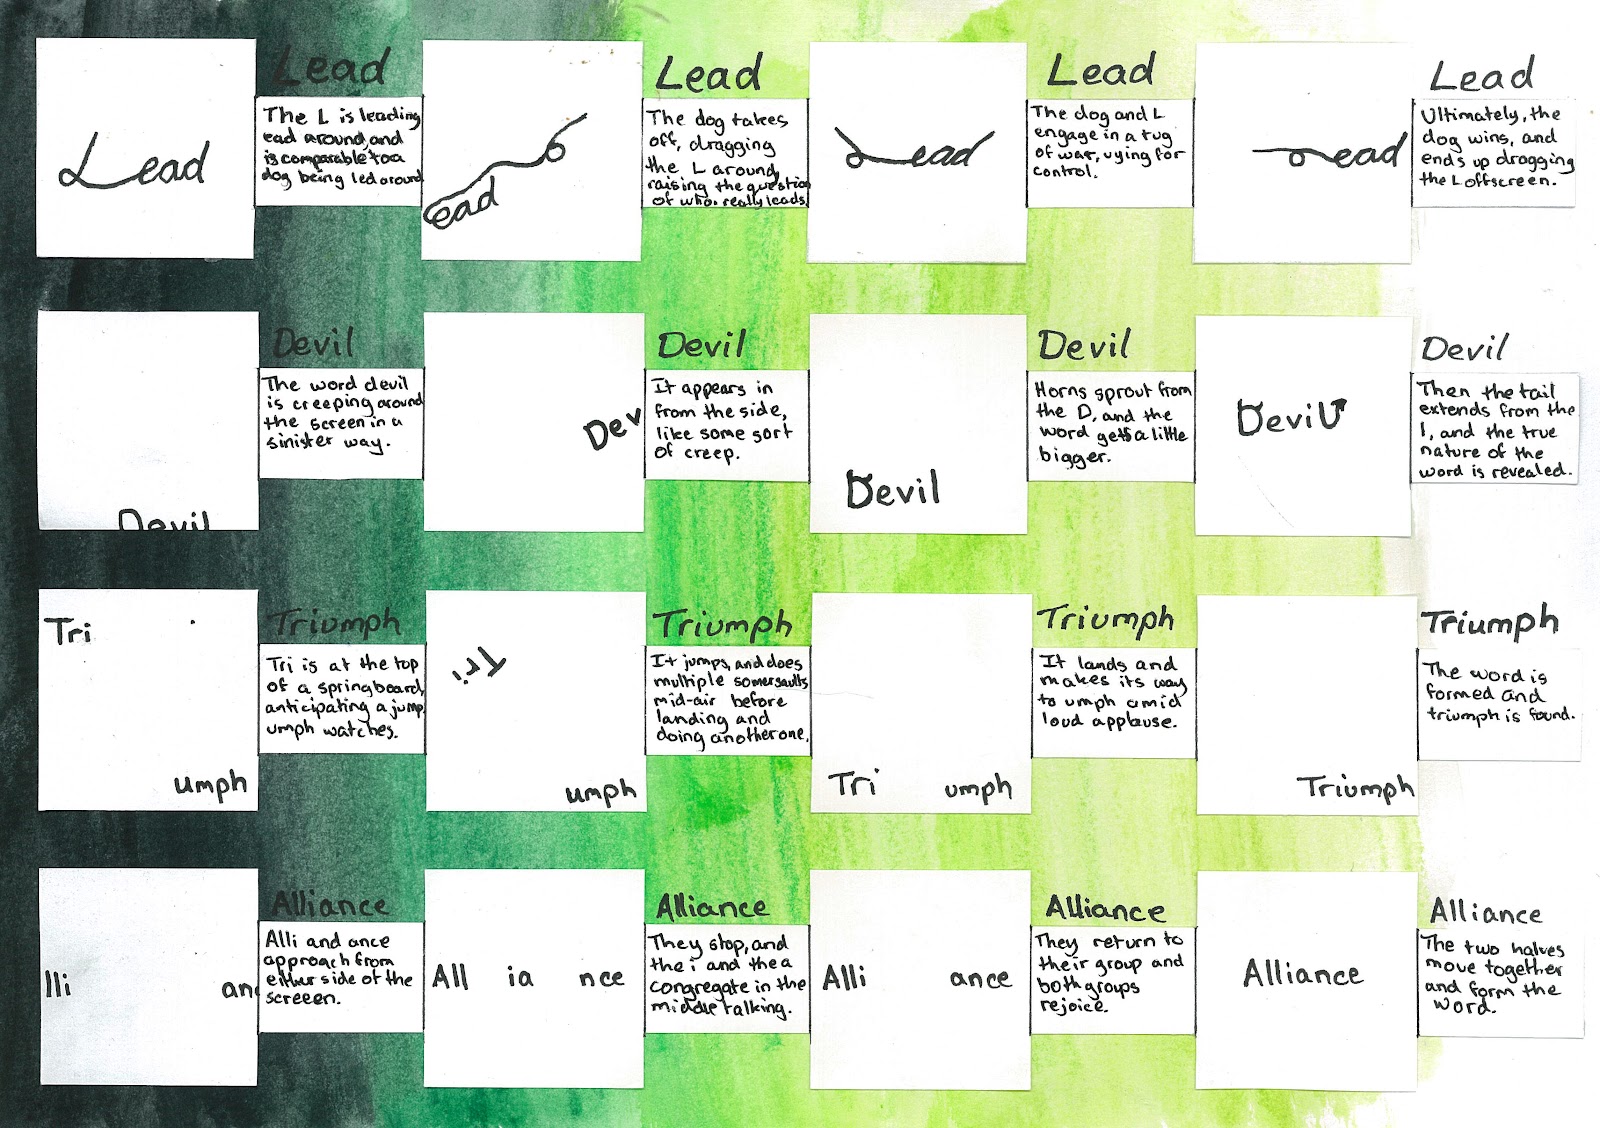 Lead
Lead
The L is leading
ead around, and
is comparable to a
dog being led around
ead
Lead
The dog takes
off, dragging
the L around,
raising the question
of who really leads.
Lead
Lead
The dog and L
engage in a tug
of war, vying for
control.
ead
Lead
Ultimately, the
dog wins, and
ends up dragging
the L offscreen.
Devil
Devil
The word devil
is creeping around
the screen in a
sinister way.
Dev
Devil
It appears in
from the side,
like some sort
of creep.
Devil
Devil
Horns sprout from
the D, and the
word gets a little
bigger.
Devil
Devil
Then the tail
extends from the
l, and the true
nature of the
word is revealed.
Tri
umph
Triumph
Tri is at the top
of a springboard,
anticipating a jump.
umph watches.
Tri
umph
Triumph
It jumps, and does
multiple somersaults
mid-air before
landing and
doing another one.
Tri umph
Triumph
It lands and
makes its way
to umph amid
loud applause.
Triumph
Triumph
The word is
formed and
triumph is found.
lli an
Alliance
Alli and ance
approach from
either side of the
screeen.
All ia nce
Alliance
They stop, and
the i and the a
congregate in the
middle talking.
Alli ance
Alliance
They return to
their group and
both groups
rejoice.
Alliance
Alliance
The two halves
move together
and form the
word.